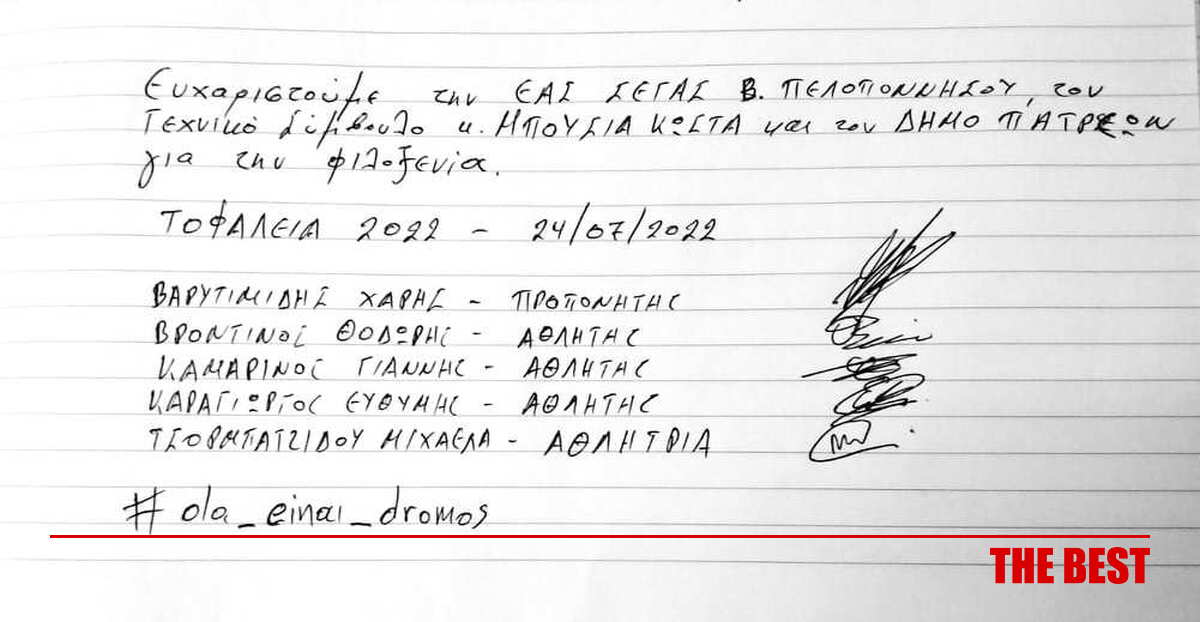 Ευχαριστούμε την ΕΑΣ ΣΕΓΑΣ Β. ΠΕΛΟΠΟΝΝΗΣΟΥ, τον
Τεχνικό Σύμβουλο κ. ΜΠΟΥΣΙΑ ΚΩΣΤΑ και τον ΔΗΜΟ ΠΑΤΡΕΩΝ
για την φιλοξενία.
ΤΟΦΑΛΕΙΑ 2022 - 24/07/2022
ΒΑΡΥΤΙΜΙΔΗΣ ΧΑΡΗΣ - ΠΡΟΠΟΝΗΤΗΣ
ΒΡΟΝΤΙΝΟΣ ΘΟΔΩΡΗΣ - ΑΘΛΗΤΗΣ
ΚΑΜΑΡΙΝΟΣ ΓΙΑΝΝΗΣ - ΑΘΛΗΤΗΣ
ΚΑΡΑΓΙΩΡΓΟΣ ΕΥΘΥΜΗΣ - ΑΘΛΗΤΗΣ
ΤΣΟΡΜΠΑΤΖΙΔΟΥ ΜΙΧΑΕΛΑ - ΑΘΛΗΤΡΙΑ
# ola_einai_dromos
THE BEST